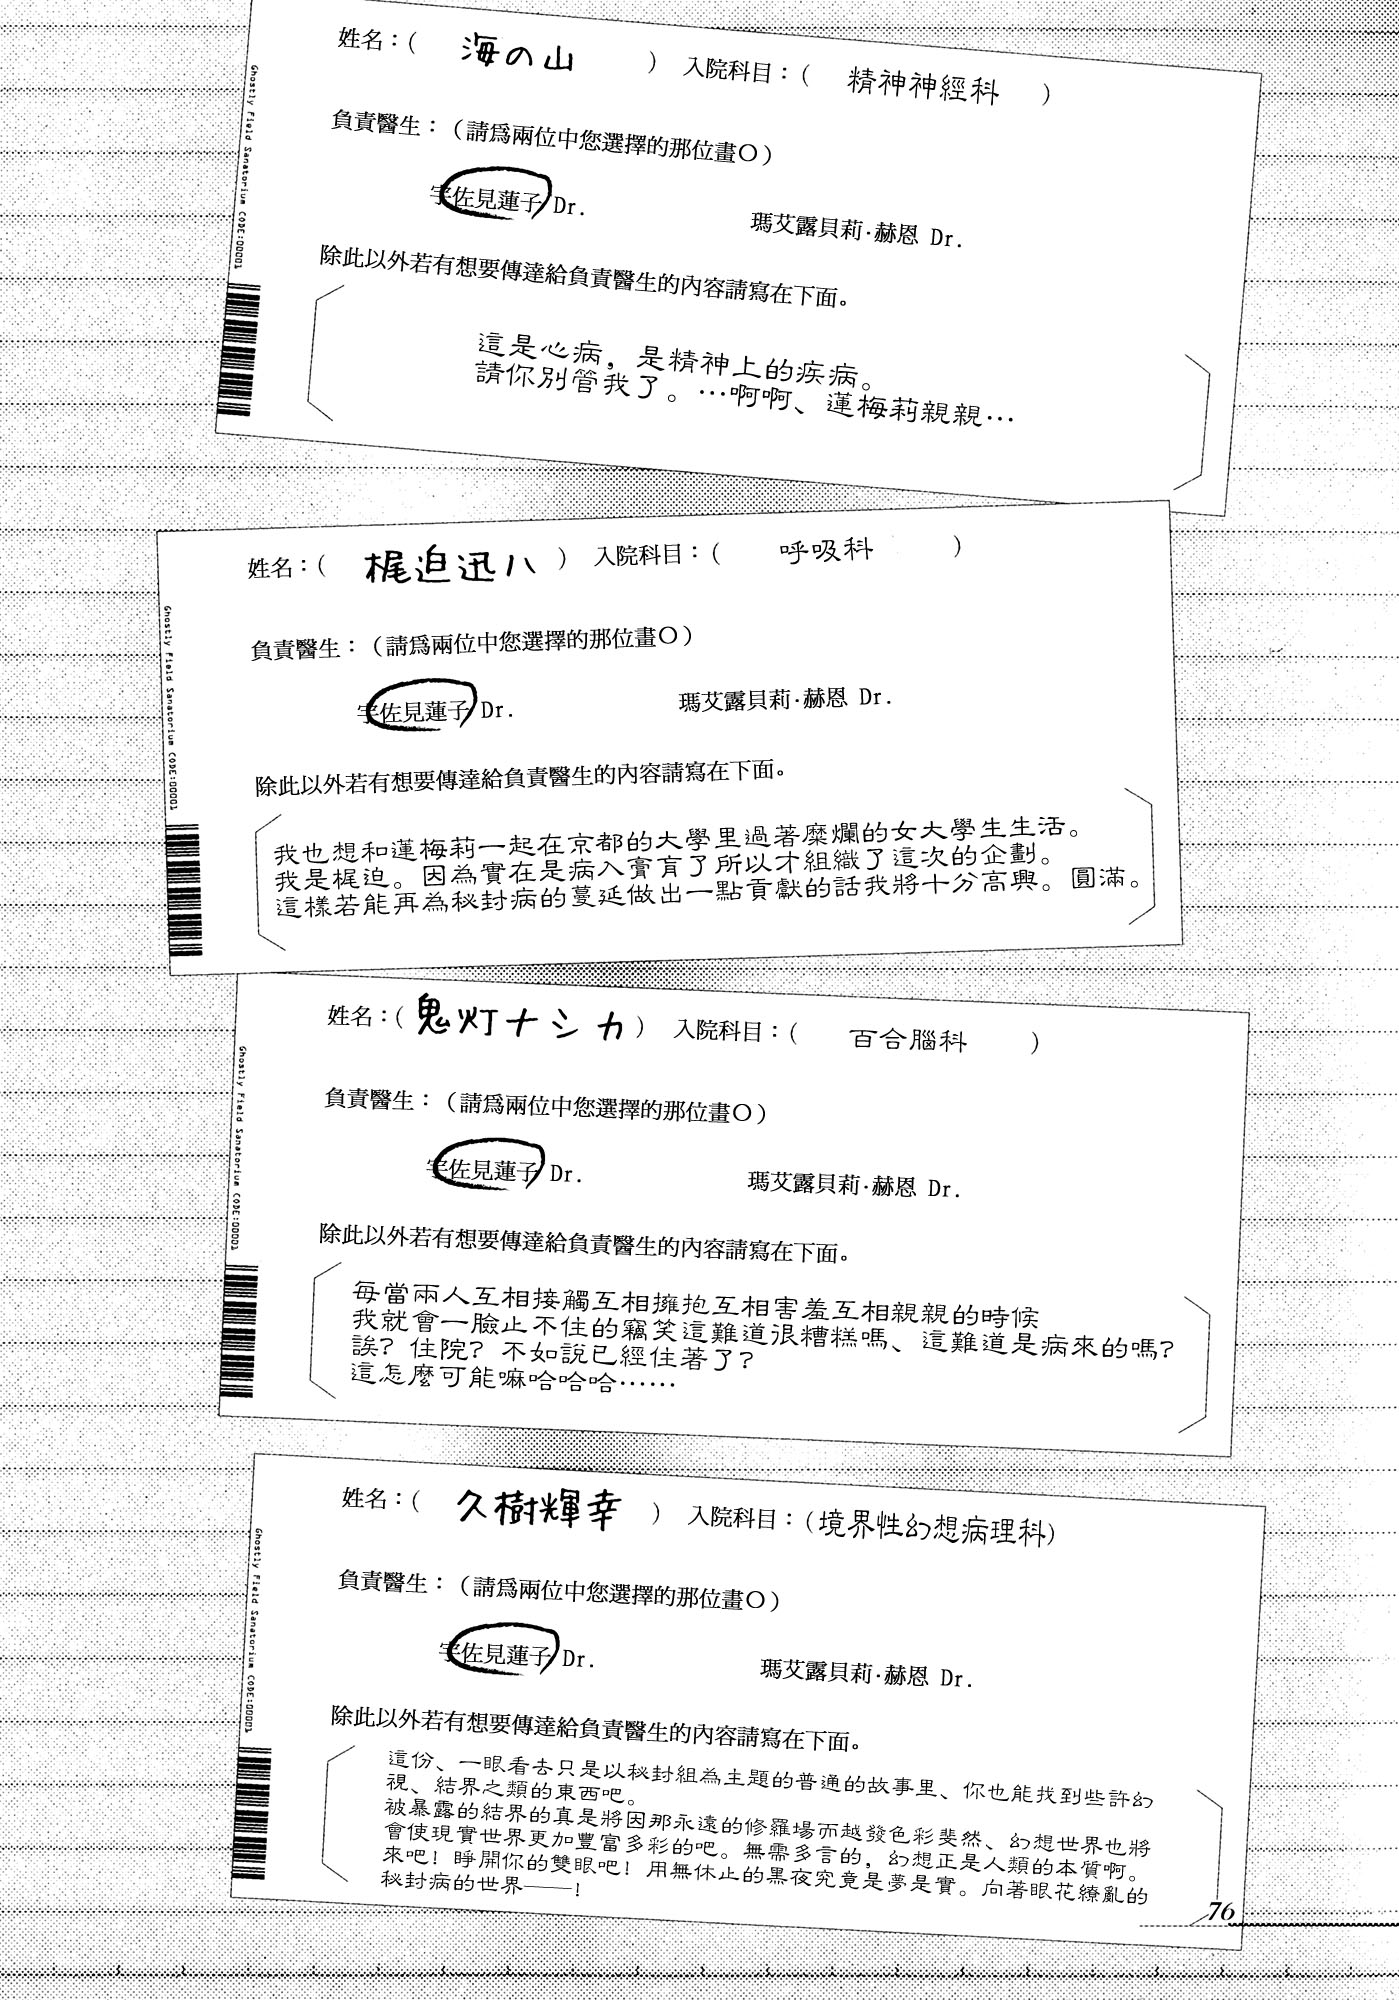 姓名：( 海の山 ) 入院科目：( 精神神經科 )
負責醫生：（請爲兩位中您選擇的那位畫○）
宇佐見蓮子 Dr. 瑪艾露貝莉·赫恩 Dr.
除此以外若有想要傳達給負責醫生的內容請寫在下面。
這是心病，是精神上的疾病。
請你別管我了。…啊啊、蓮梅莉親親…
Ghostly Field Sanatorium CODE:00001
姓名：( 梶迫迅八 ) 入院科目：( 呼吸科 )
負責醫生：（請爲兩位中您選擇的那位畫○）
宇佐見蓮子 Dr. 瑪艾露貝莉·赫恩 Dr.
除此以外若有想要傳達給負責醫生的內容請寫在下面。
我也想和蓮梅莉一起在京都的大學里過著糜爛的女大學生生活。
我是梶迫。因為實在是病入膏肓了所以才組織了這次的企劃。
這樣若能再為秘封病的蔓延做出一點貢獻的話我將十分高興。圓滿。
Ghostly Field Sanatorium CODE:00001
姓名：( 鬼灯ナシカ ) 入院科目：( 百合腦科 )
負責醫生：（請爲兩位中您選擇的那位畫○）
宇佐見蓮子 Dr. 瑪艾露貝莉·赫恩 Dr.
除此以外若有想要傳達給負責醫生的內容請寫在下面。
每當兩人互相接觸互相擁抱互相害羞互相親親的時候
我就會一臉止不住的竊笑這難道很糟糕嗎、這難道是病來的嗎?
誒? 住院? 不如說已經住著了?
這怎麼可能嘛哈哈哈……
Ghostly Field Sanatorium CODE:00001
姓名：( 久樹輝幸 ) 入院科目：(境界性幻想病理科)
負責醫生：（請爲兩位中您選擇的那位畫○）
宇佐見蓮子 Dr. 瑪艾露貝莉·赫恩 Dr.
除此以外若有想要傳達給負責醫生的內容請寫在下面。
這份、一眼看去只是以秘封組為主題的普通的故事里、你也能找到些許幻
視、結界之類的東西吧。
被暴露的結界的真是將因那永遠的修羅場而越發色彩斐然、幻想世界也將
會使現實世界更加豐富多彩的吧。無需多言的，幻想正是人類的本質啊。
來吧! 睜開你的雙眼吧! 用無休止的黑夜究竟是夢是實。向著眼花繚亂的
秘封病的世界——!
Ghostly Field Sanatorium CODE:00001
76